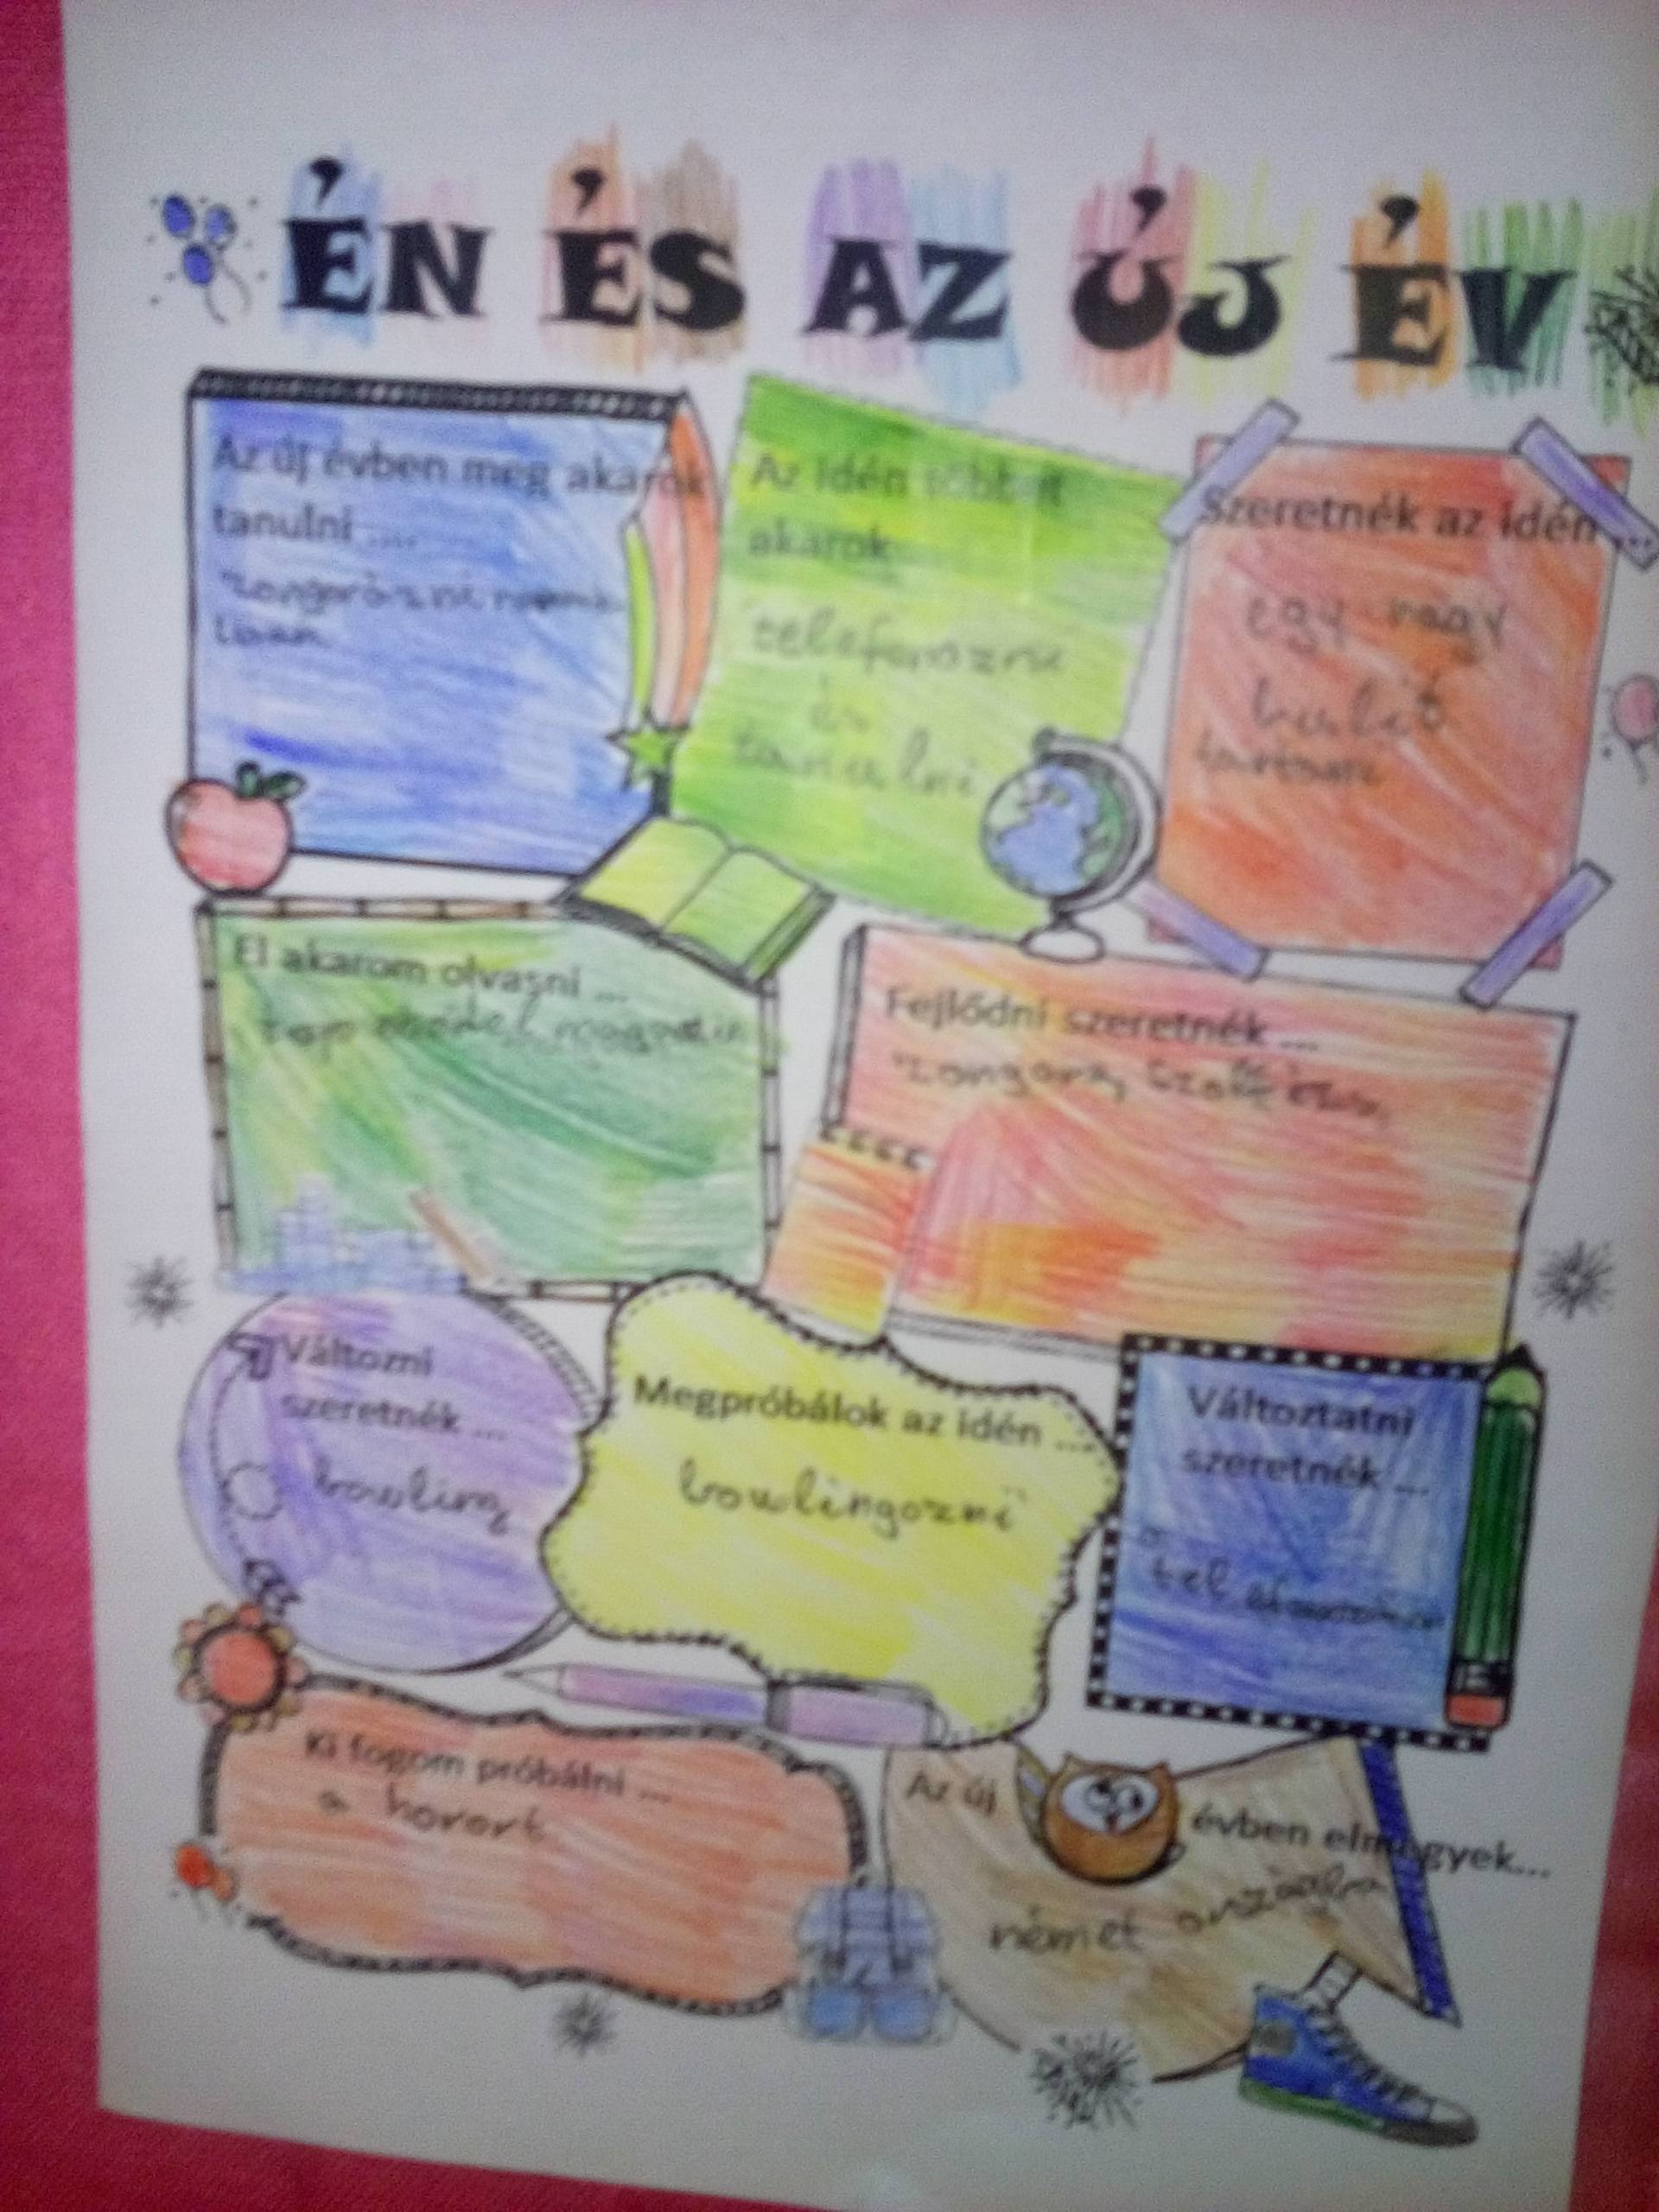 ÉN ÉS AZ ÚJ ÉV
Az új évben meg akarok
tanulni ....
zongorázni
Az idén többet
akarok
telefonozni
és
tanulni
Szeretnék az idén ...
egy nagy
bulit
tartani
El akarom olvasni ...
top
Fejlődni szeretnék ...
zongora,
Változni
szeretnék ...
bowling
Megpróbálok az idén ...
bowlingozni
Változtatni
szeretnék ...
Ki fogom próbálni ...
a horort
Az új évben elmegyek...
német országba